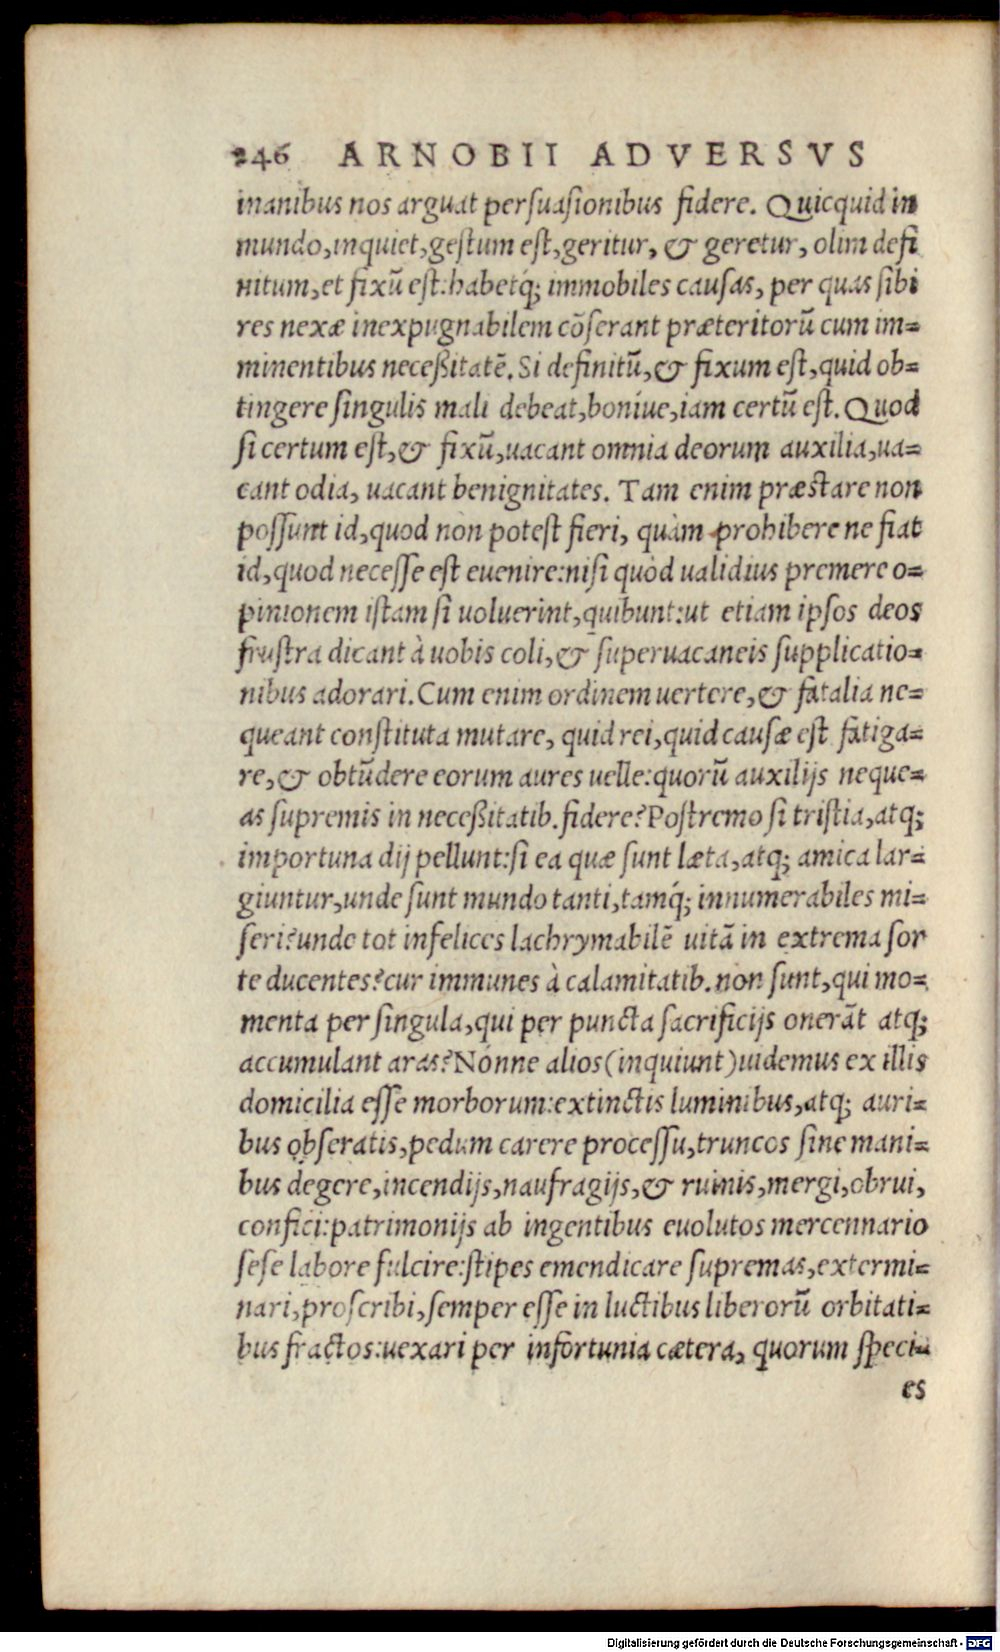 246 ARNOBII ADVERSVS
inanibus nos arguat persuasionibus fidere. Quicquid in
mundo,inquiet,gestum est,geritur, & geretur, olim defi
nitum,et fixũ est:habetq́; immobiles causas, per quas sibi
res nexæ inexpugnabilem cõserant præteritorũ cum im=
minentibus neceßitatẽ. Si definitũ,& fixum est,quid ob=
tingere singulis mali debeat,boníue,iam certũ est. Quod
si certum est,& fixũ,uacant omnia deorum auxilia,ua=
cant odia, uacant benignitates. Tam enim præstare non
possunt id,quod non potest fieri, quàm prohibere ne fiat
id,quod necesse est euenire:nisi quòd validius premere o=
pinionem istam si uoluerint,quibunt:ut etiam ipsos deos
frustra dicant à uobis coli,& superuacaneis supplicatio=
nibus adorari. Cum enim ordinem uertere,& fatalia ne=
queant constituta mutare, quid rei,quid causæ est fatiga=
re,& obtũdere eorum aures uelle:quorũ auxilijs neque=
as supremis in neceßitatib. fidere? Postremo si tristia,atq;
importuna dij pellunt:si ea quæ sunt læta,atq; amica lar=
giuntur,unde sunt mundo tanti,tamq́; innumerabiles mi=
seri?unde tot infelices lachrymabilẽ uitã in extrema sor
te ducentes?cur immunes à calamitatib. non sunt,qui mo=
menta per singula,qui per puncta sacrificijs onerãt atq;
accumulant aras? Nónne alios(inquiunt)uidemus ex illis
domicilia esse morborum:extinctis luminibus,atq; auri=
bus obseratis,pedum carere processu,truncos sine mani=
bus degere,incendijs,naufragijs,& ruinis,mergi,obrui,
confici:patrimonijs ab ingentibus euolutos mercennario
sese labore fulcire:stipes emendicare supremas,extermi=
nari,proscribi,semper esse in luctibus liberorũ orbitati=
bus fractos:uexari per infortunia cætera, quorum speci=
es
Digitalisierung gefördert durch die Deutsche Forschungsgemeinschaft - DFG